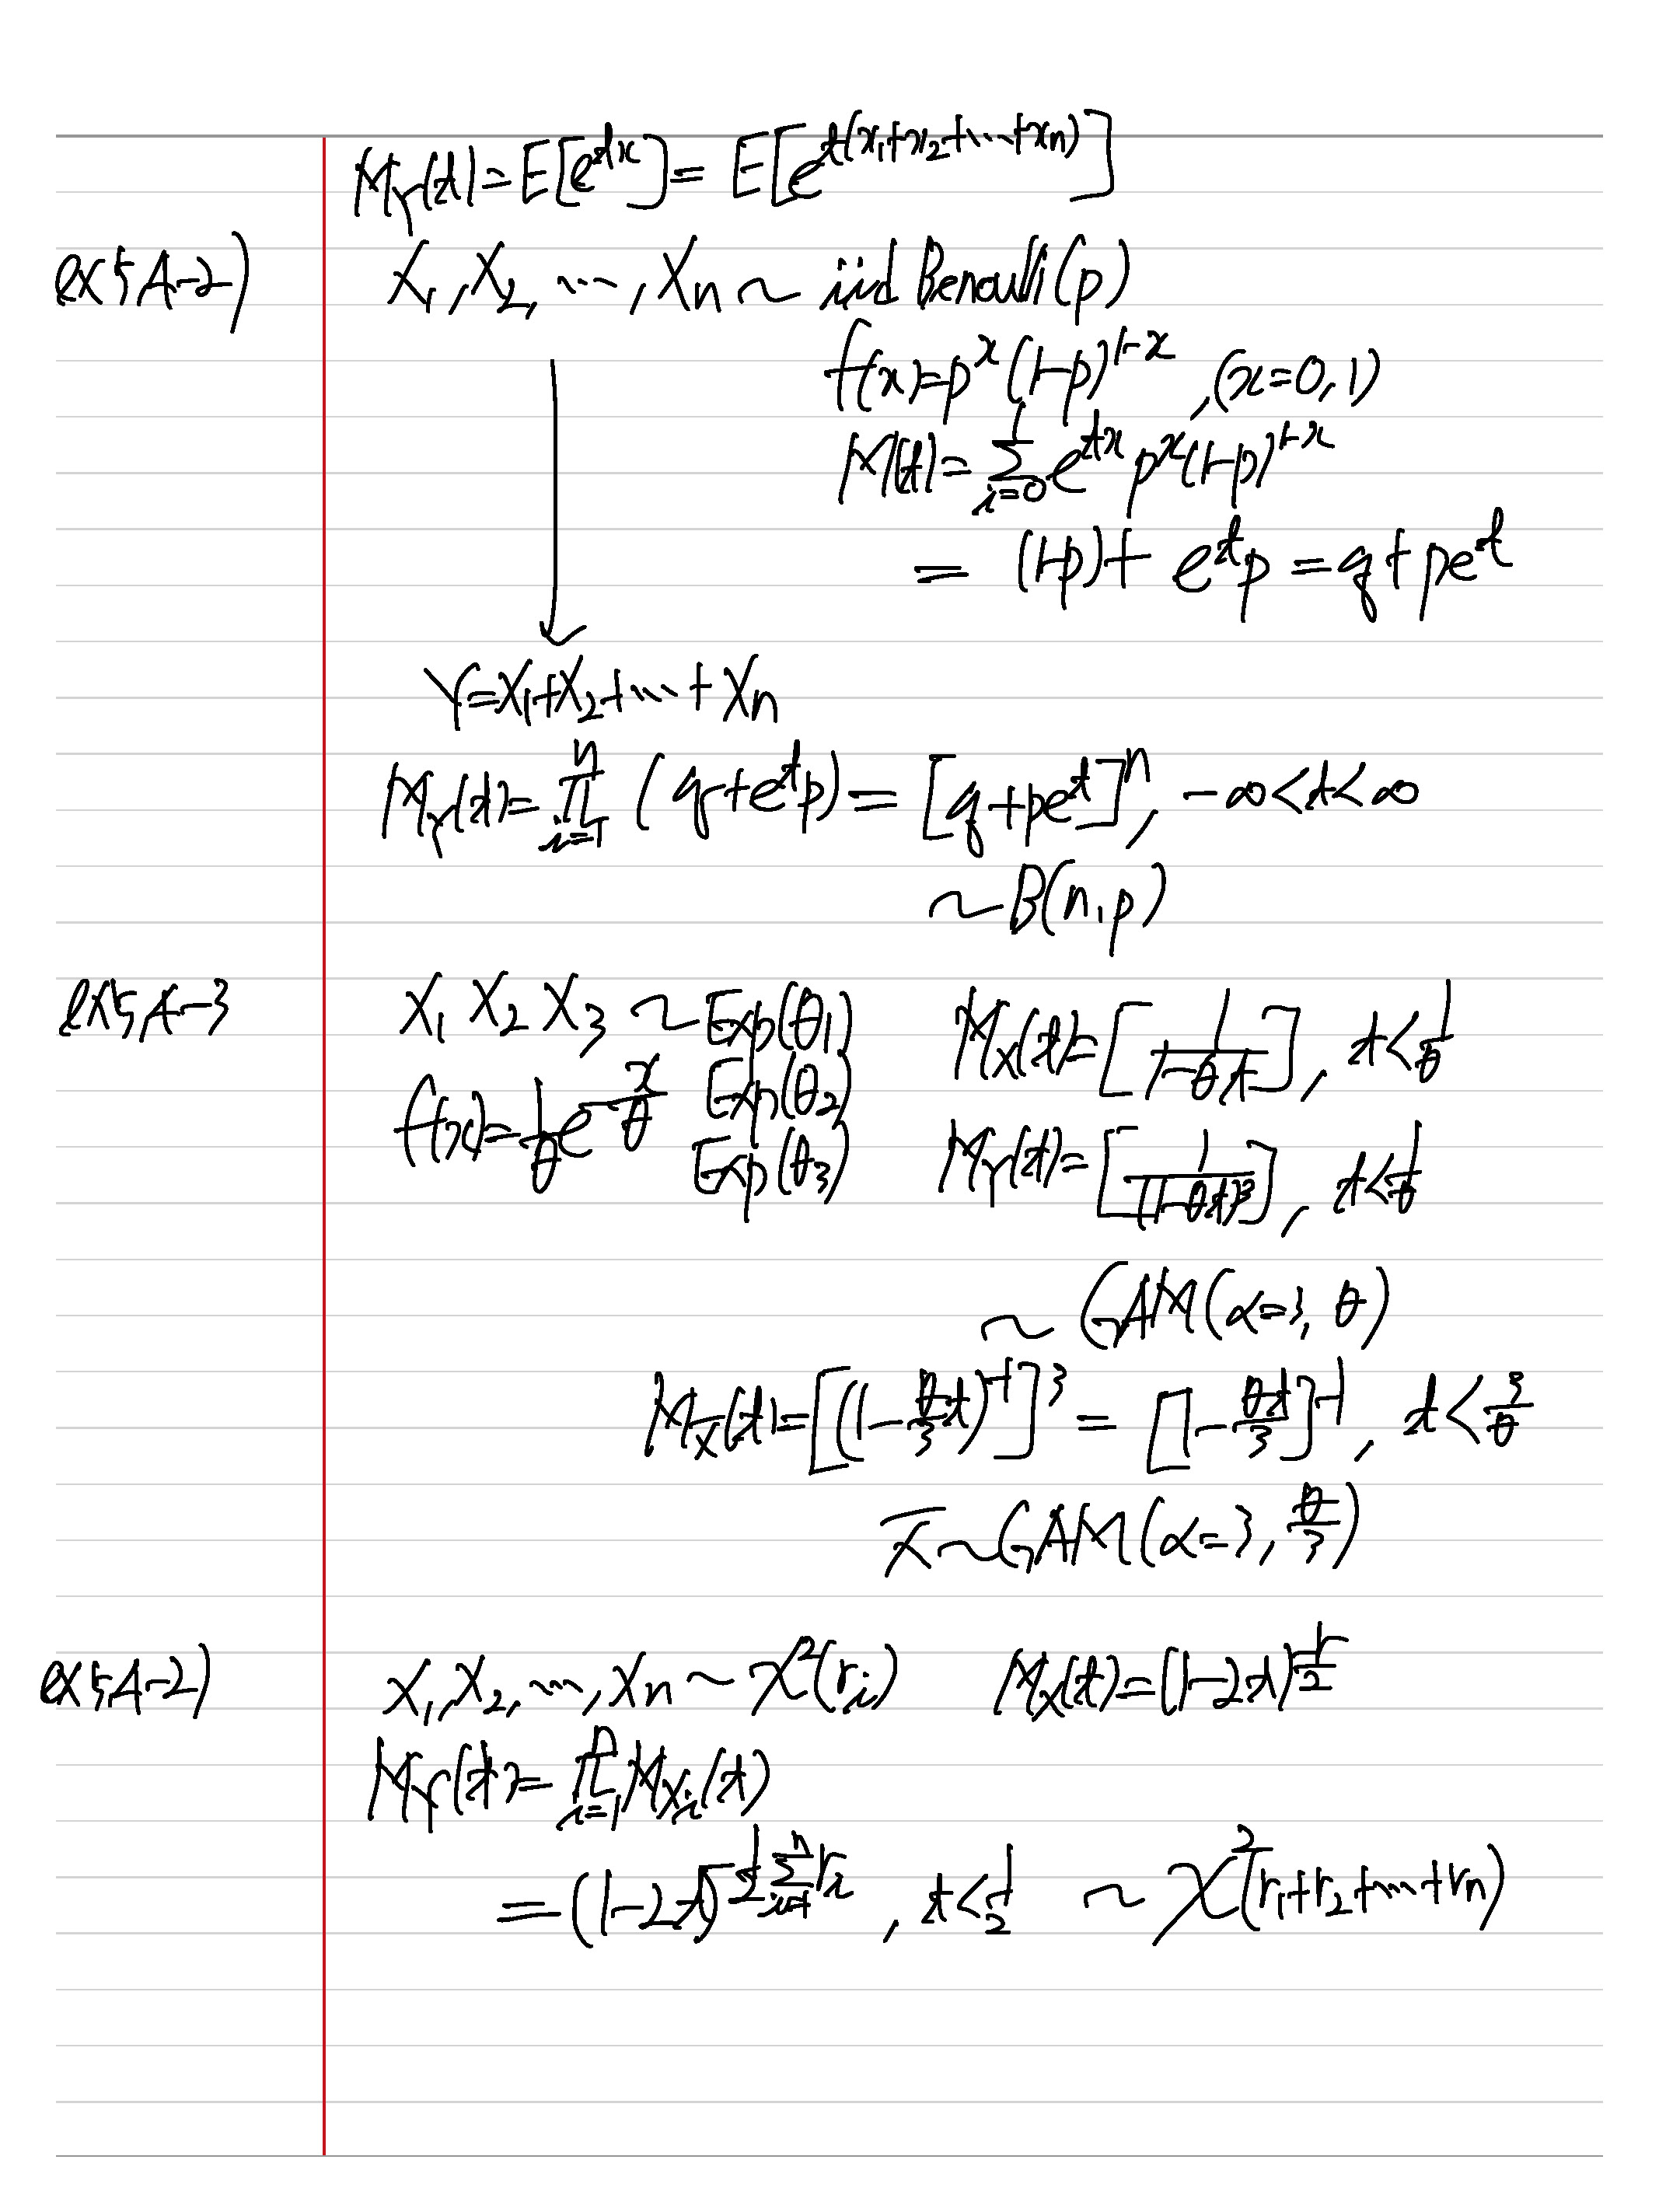 M_Y(t) = E[e^{tx}] = E[e^{t(x₁+x₂+⋯+xn)}]
ex 5,A-2) X₁, X₂, ⋯, Xn ~ iid Benoulli(p)
f(x) = p^x (1-p)^{1-x}, (x=0,1)
M(t) = Σ_{i=0}^{1} e^{tx} p^x (1-p)^{1-x}
= (1-p) + e^t p = q + pe^t
Y = X₁+X₂+⋯+Xn
M_Y(t) = ∏_{i=1}^{n} (q+e^t p) = [q+pe^t]^n, -∞<t<∞
~ B(n,p)
ex 5,A-3 X₁ X₂ X₃ ~ Exp(θ₁) M_X(t) = [1/(1-θt)], t<1/θ
f(x) = 1/θ e^{-x/θ} Exp(θ₂)
Exp(θ₃) M_Y(t) = [1/(1-θt)³], t<1/θ
~ GAM(α=3, θ)
M_X̄(t) = [(1-θ/3 t)^{-1}]³ = [1-θt/3]^{-1}, t<3/θ
X̄ ~ GAM(α=3, θ/3)
ex 5,A-2) X₁, X₂, ⋯, Xn ~ χ²(r_i) M_X(t) = (1-2t)^{r/2}
M_Y(t) = ∏_{i=1}^{n} M_{X_i}(t)
= (1-2t)^{-1/2 Σ_{i=1}^{n} r_i}, t<1/2 ~ χ²(r₁+r₂+⋯+rn)